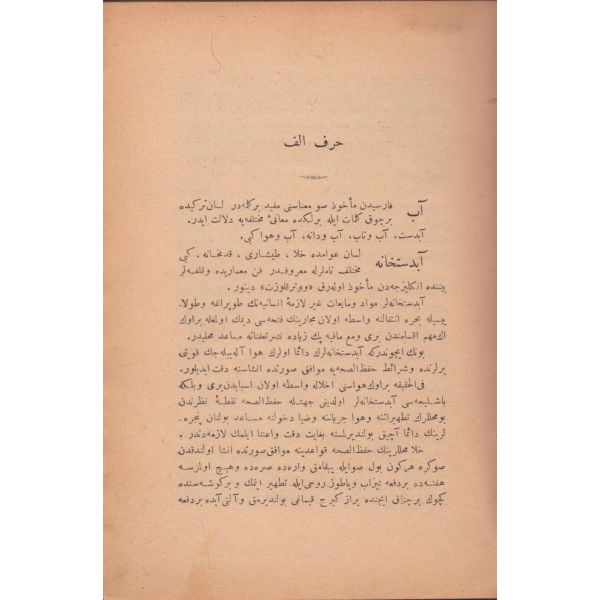 حرف الف
آب فارسیدن مأخوذ صو معناسنی مفید برکله‌در لسان ترکیده
برچوق کلمات ایله برلکده معانیٔ مختلفه‌یه دلالت ایدر.
آبدست، آب وتاب، آب ودانه، آب وهوا کبی.
آبدستخانه لسان عوامده خلا ، طیشاری ، قدمخانه ، کبی
مختلف ناملرله معروفدر فن معماریده وقلفه‌لر
بیننده انکلیزجه‌دن مأخوذ اوله‌رق «ووترقلوزت» دینور .
آبدستخانه‌لر مواد ومایعات غیر لازمهٔ انسانیه‌نك طوپراغه وطولا‌
ییسیله بحره انتقالنه واسطه اولان مجارینك فتحه‌سی دیمك اولمغله براوك
اك‌مهم اقسامندن بری ومع مافیه پك زیاده نشر تعفناته مساعد محلیدر.
بونك ایچوندرکه آبدستخانه‌لرك دائما اولرك هوا آله‌بیله‌جك قویتی
یرلرنده وشرائط حفظ‌الصحه‌یه موافق صورتده انشاسنه دقت ایدیلور.
فی‌الحقیقه براوك هواسنی اخلاله واسطه اولان اسبابدن بری وبلکه
باشلیجه‌سی آبدستخانه‌لر اولدیغی جهتله حفظ‌الصحه نقطهٔ نظرندن
بومحللرك تطهیراتنه وهوا جریاننه وضیا دخولنه مساعد بولنان پنجره‌ـ
لرینك دائما آچیق بولندیرلمسنه بغایت دقت واعتنا ایلمك لازمه‌دندر .
خلا محللرینك حفظ‌الصحه قواعدینه موافق صورتده انشا اولندقدن
صوکره هرکون بول صوایله ییقامق واره‌ده صره‌ده وهیچ اولمزسه
هفته‌ده بردفعه تیزاب ویاطوز روحی‌ایله تطهیر ایتمك و برکوشه‌سنده
کچوك برچناق ایچنده براز کیرج قیماغی بولندیرمق وآلتی‌آیده بردفعه